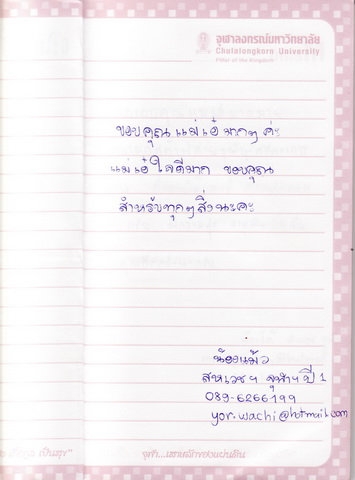 จุฬาลงกรณ์มหาวิทยาลัย
Chulalongkorn University
Pillar of the Kingdom
ขอบคุณ แม่เอ๋ มากๆ ค่ะ
แม่เอ๋ ใจดีมาก ขอบคุณ
สำหรับทุกๆ สิ่งนะคะ
น้องแม้ว
สหเวชฯ จุฬาฯ ปี 1
089-6266199
yor.wachi@hotmail.com
เป็นสุข"
"จุฬาฯ...เสาหลักของแผ่นดิน